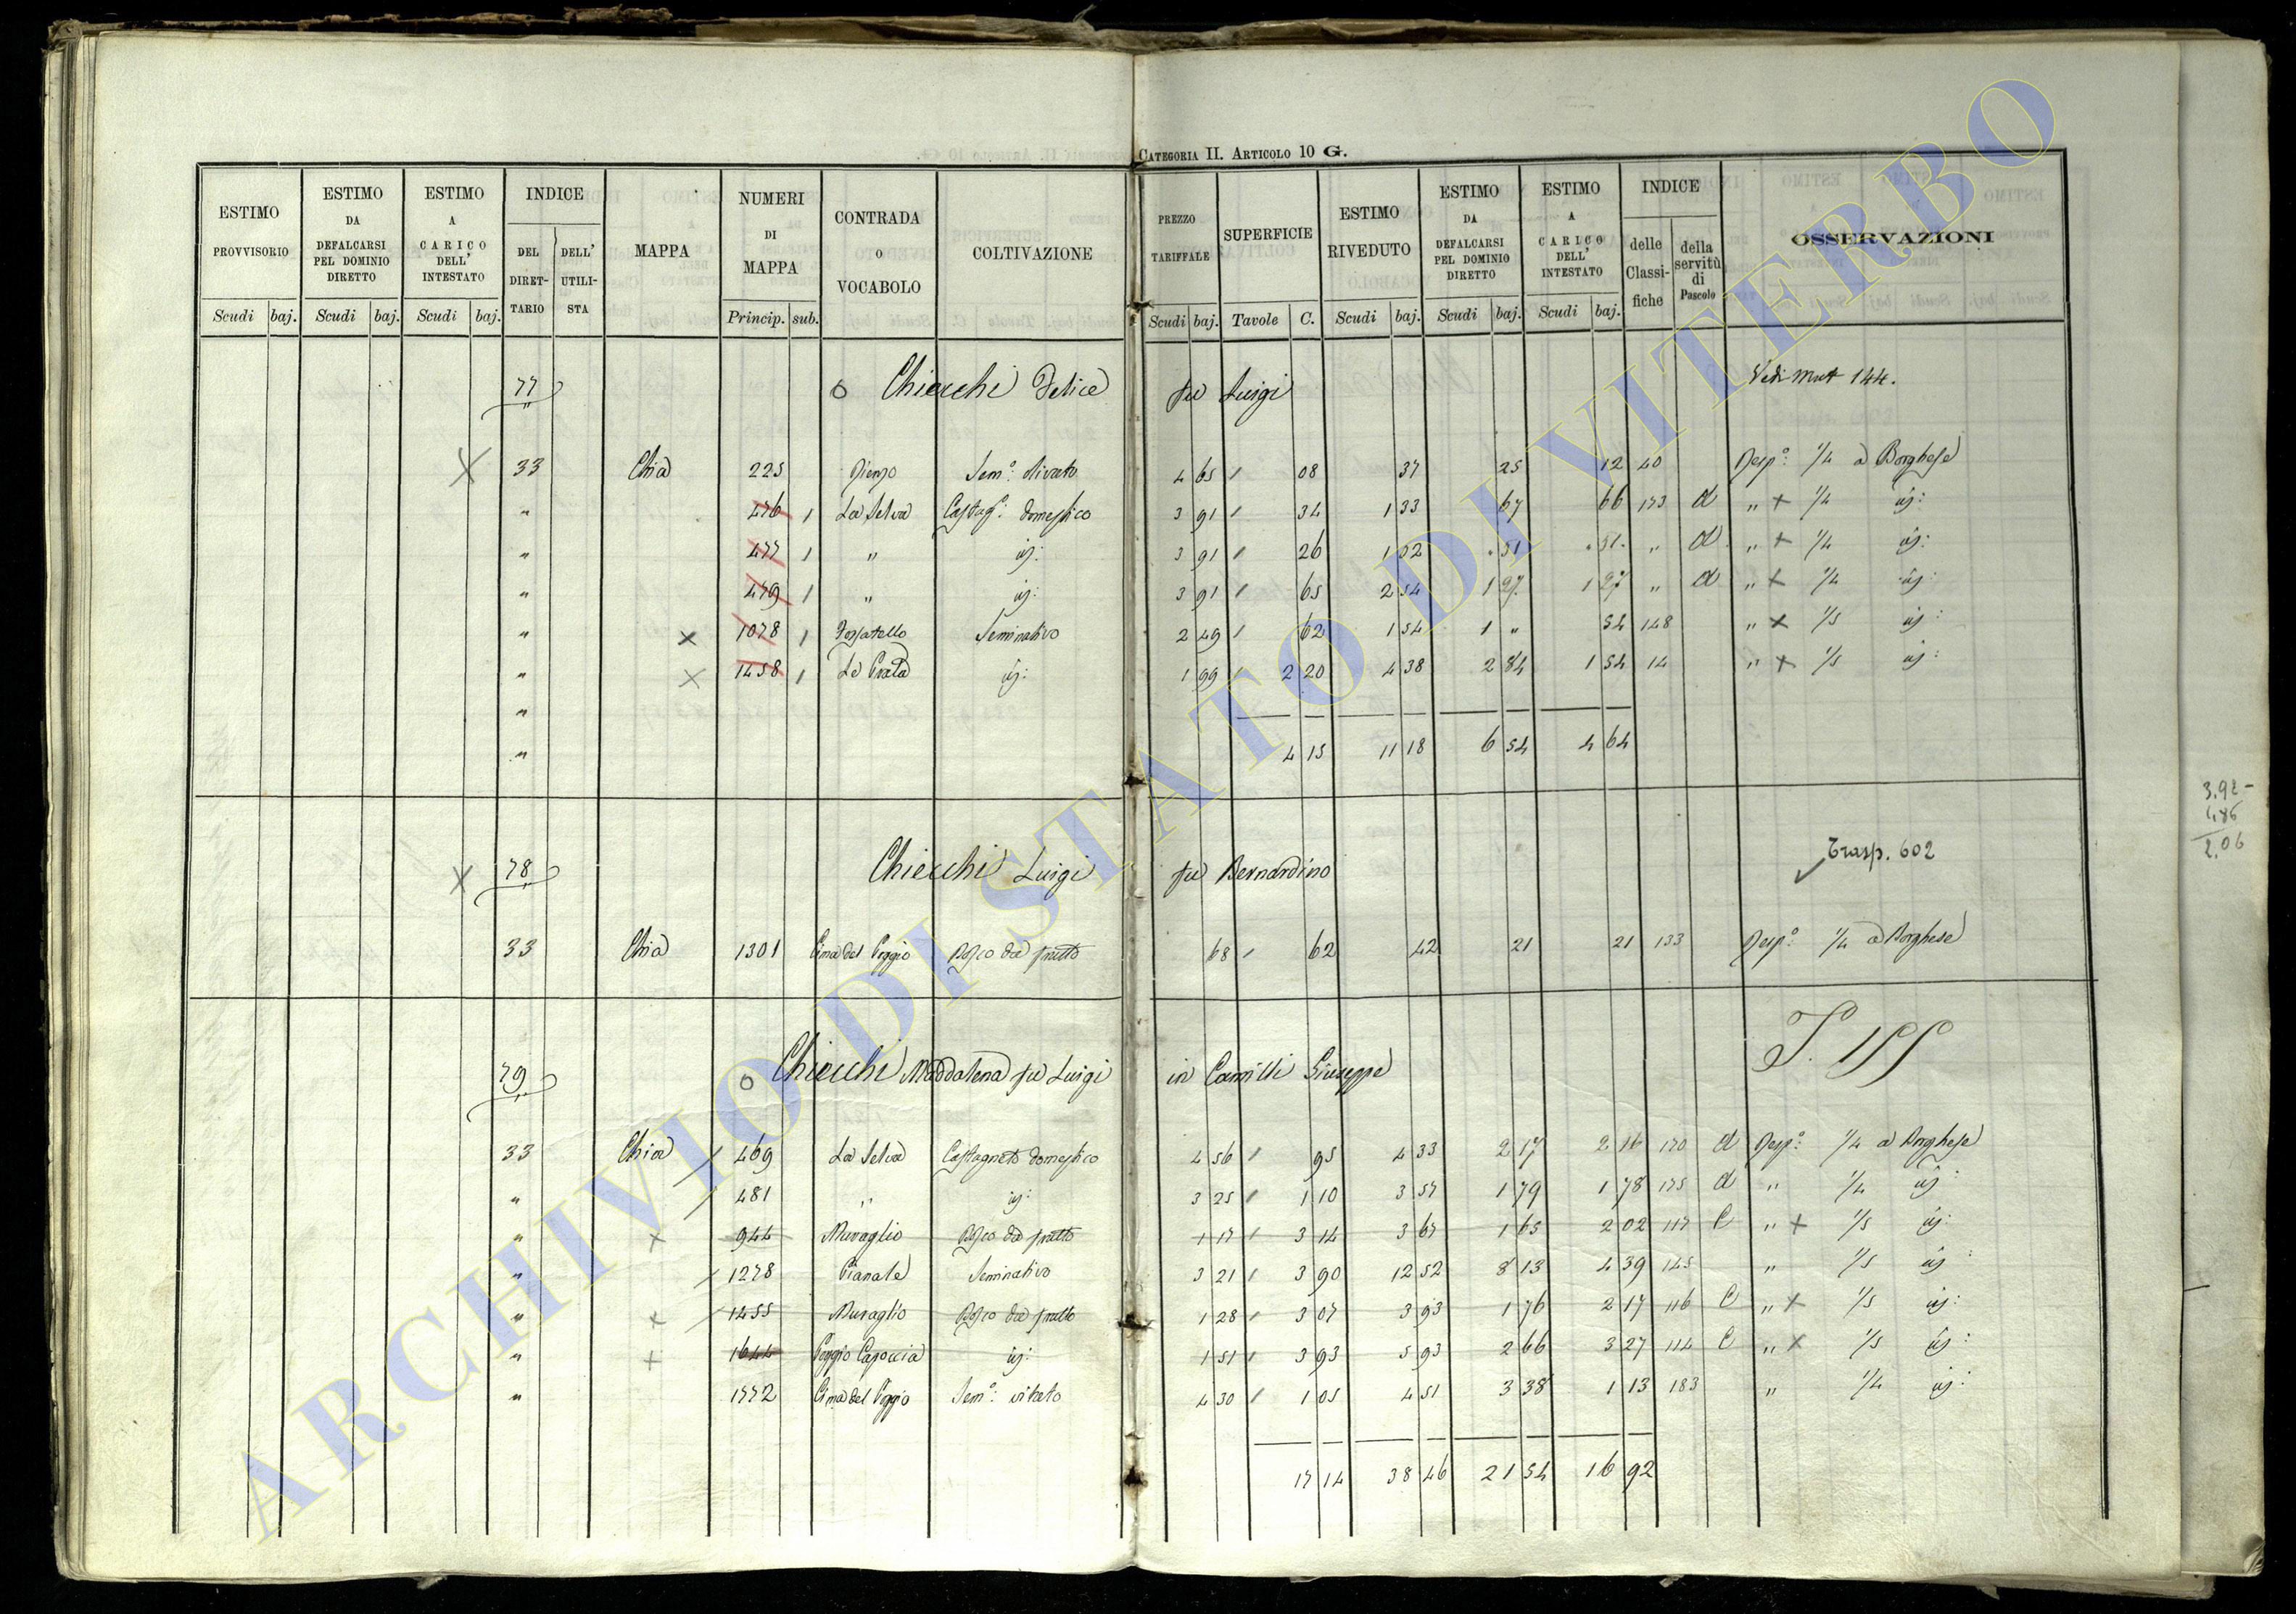 CATEGORIA II. ARTICOLO 10 G.
ESTIMO PROVVISORIO | ESTIMO DA DEFALCARSI PEL DOMINIO DIRETTO | ESTIMO A CARICO DELL' INTESTATO | INDICE | MAPPA | NUMERI DI MAPPA | CONTRADA O VOCABOLO | COLTIVAZIONE | PREZZO TARIFFALE | SUPERFICIE | ESTIMO RIVEDUTO | ESTIMO DA DEFALCARSI PEL DOMINIO DIRETTO | ESTIMO A CARICO DELL' INTESTATO | INDICE | OSSERVAZIONI
DEL DIRET-TARIO | DELL' UTILI-STA | delle Classi-fiche | della servitù di Pascolo
Scudi | baj. | Scudi | baj. | Scudi | baj. | Princip. | sub. | Scudi | baj. | Tavole | C. | Scudi | baj. | Scudi | baj. | Scudi | baj.
77 o Chiecchi Felice fu Luigi Vedi Mut 144.
X 33 Chia 225 Sem.º olivato 4 65 / 08 37 25 12 40 Resp.º: 1/4 a Borghese
" 476 1 La Selva Castag.º: domestico 3 91 / 34 1 33 67 66 173 d " + 1/4 id:
" 477 1 " id: 3 91 / 26 1 02 . 51 . 51 . " d " + 1/4 id:
" 479 1 " id: 3 91 / 65 2 54 1 27 1 27 " d " + 1/4 id:
" x 1078 1 Fossatello Seminativo 2 49 / 62 1 54 1 " 54 148 " x 1/5 id:
" x 1458 1 Le Prata id: 1 99 / 2 20 4 38 2 84 1 54 14 " + 1/5 id:
"
" 4 15 11 18 6 54 4 64
3.92 -
1.86
2.06
X 78 Chiecchi Luigi fu Bernardino Trasp. 602
33 Chia 1301 Cima del Poggio Bosco da frutto 68 / 62 42 21 21 133 Resp.º: 1/4 a Borghese
79 o Chiecchi Maddalena fu Luigi in Camilli Giuseppe T. 155
33 Chia / 469 La Selva Castagneto domestico 4 56 / 95 4 33 2 17 2 16 170 d Resp.º: 1/4 a Borghese
" / 481 " id: 3 25 / 1 10 3 57 1 79 1 78 175 d " 1/4 id:
" x 944 Muraglio Bosco da frutto 1 17 / 3 14 3 67 1 65 2 02 117 C " + 1/5 id:
" / 1278 Pianale Seminativo 3 21 / 3 90 12 52 8 13 4 39 145 " 1/5 id:
" x / 1455 Muraglio Bosco da frutto 1 28 / 3 07 3 93 1 76 2 17 116 C " x 1/5 id:
" + 1644 Poggio Capoccia id: 1 51 / 3 93 5 93 2 66 3 27 114 C " x 1/5 id:
" 1772 Cima del Poggio Sem.º: vitato 4 30 / 1 05 4 51 3 38 1 13 183 " 1/4 id:
17 14 38 46 21 54 16 92
ARCHIVIO DI STATO DI VITERBO